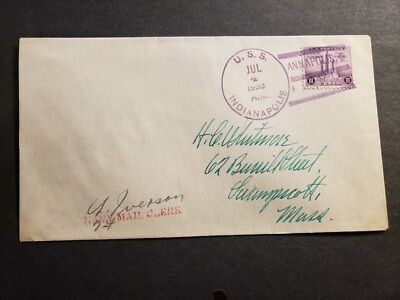 U.S.S.
JUL
1933
A.M.
INDIANAPOLIS
ANNAPOLIS,
U.S. POSTAGE
H.C. Whitmore
62 Burrill Street,
Swampscott,
Mass.
Iverson
NAVY MAIL CLERK